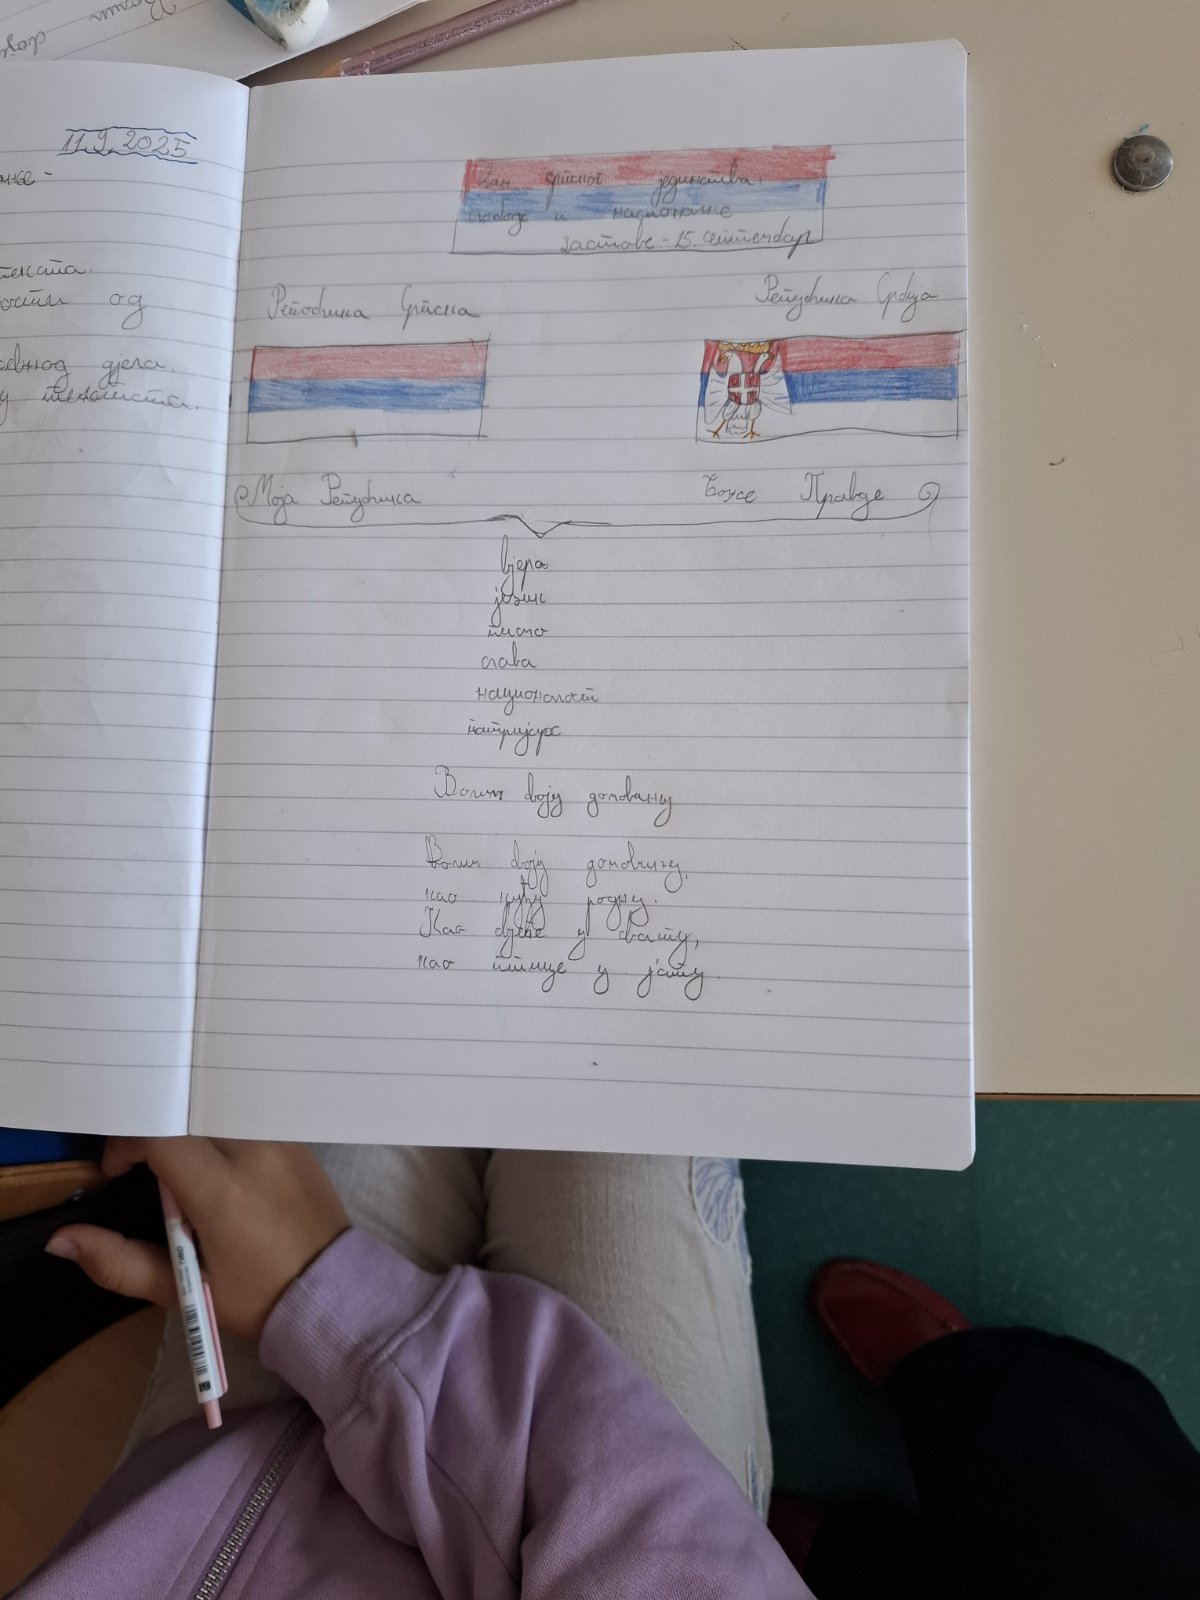 11.9.2025
текста.
од
дјела.
у
Дан српског јединства,
слободе и националне
заставе - 15. септембар
Република Српска
Република Србија
Моја Република
Боже Правде
вјера
језик
писмо
слава
националност
патријарх
Волим своју домовину
Волим своју домовину,
као кућу родну.
Као дјеве у свату,
као птице у јату.